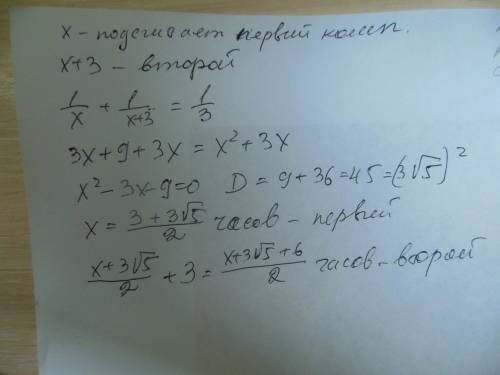 x - подсчивает первый комп.
x+3 - второй
1/x + 1/(x+3) = 1/3
3x+9+3x = x²+3x
x²-3x-9=0 D = 9+36=45=(3√5)²
x = (3+3√5)/2 часов - первый
(x+3√5)/2 + 3 = (x+3√5+6)/2 часов - второй